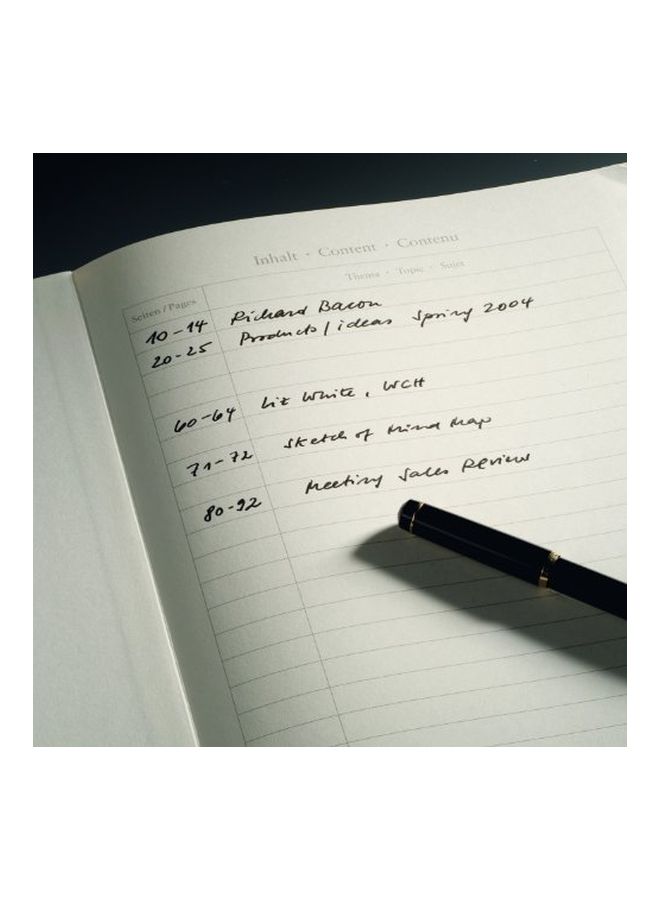 Inhalt · Content · Contenu
Seiten / Pages Thema · Topic · Sujet
10-14 Richard Bacon
20-25 Products / ideas Spring 2004
60-64 Liz White, WCH
71-72 Sketch of Mind Map
80-92 Meeting Sales Review